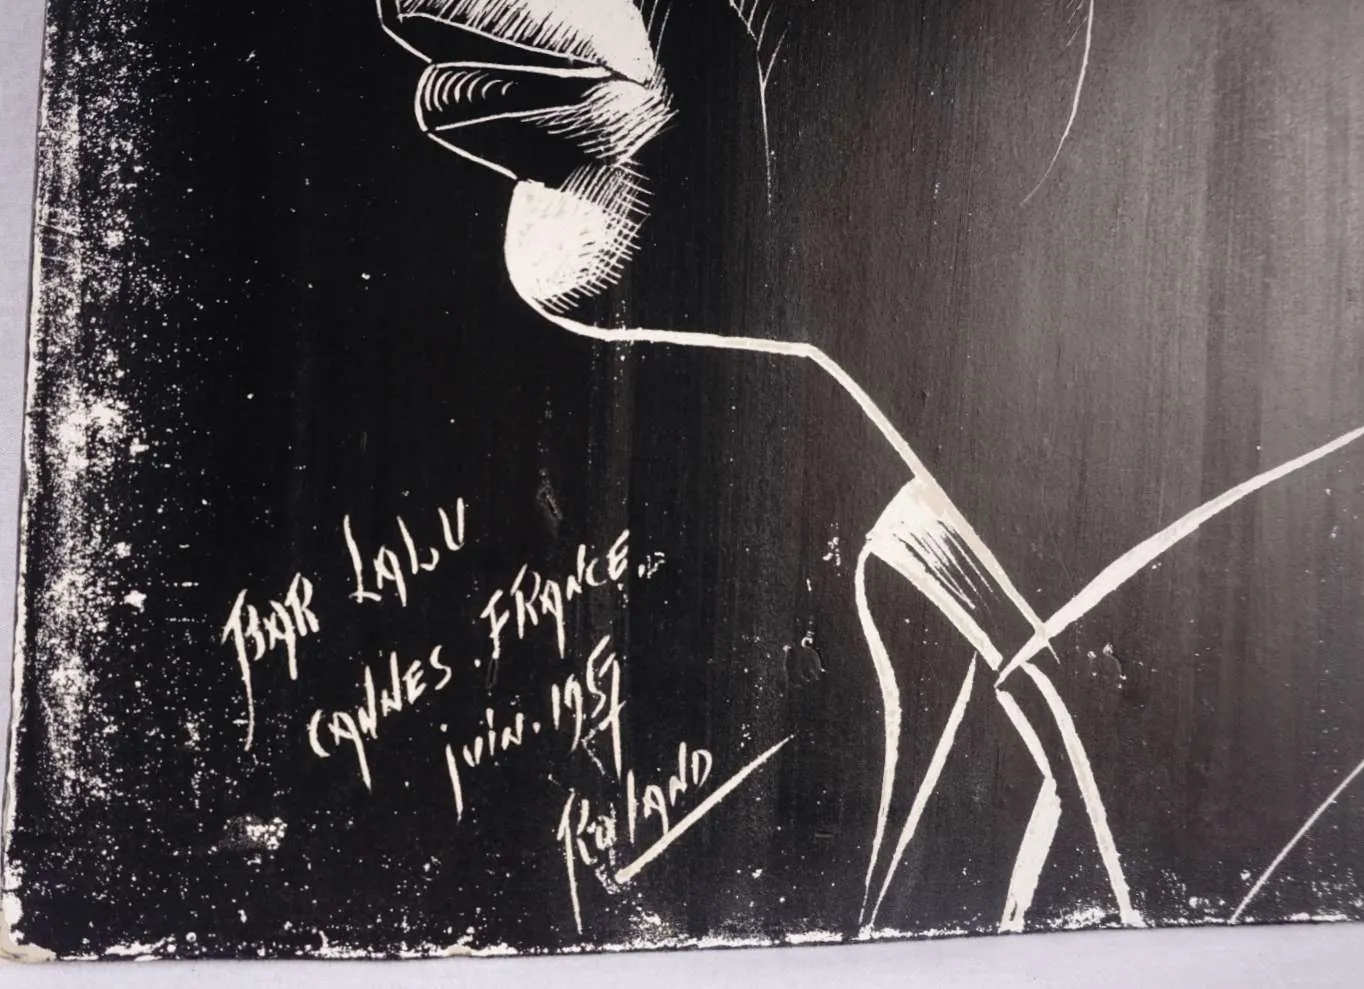 BAR LALU
CANNES. FRANCE.
juin. 1957
Roland